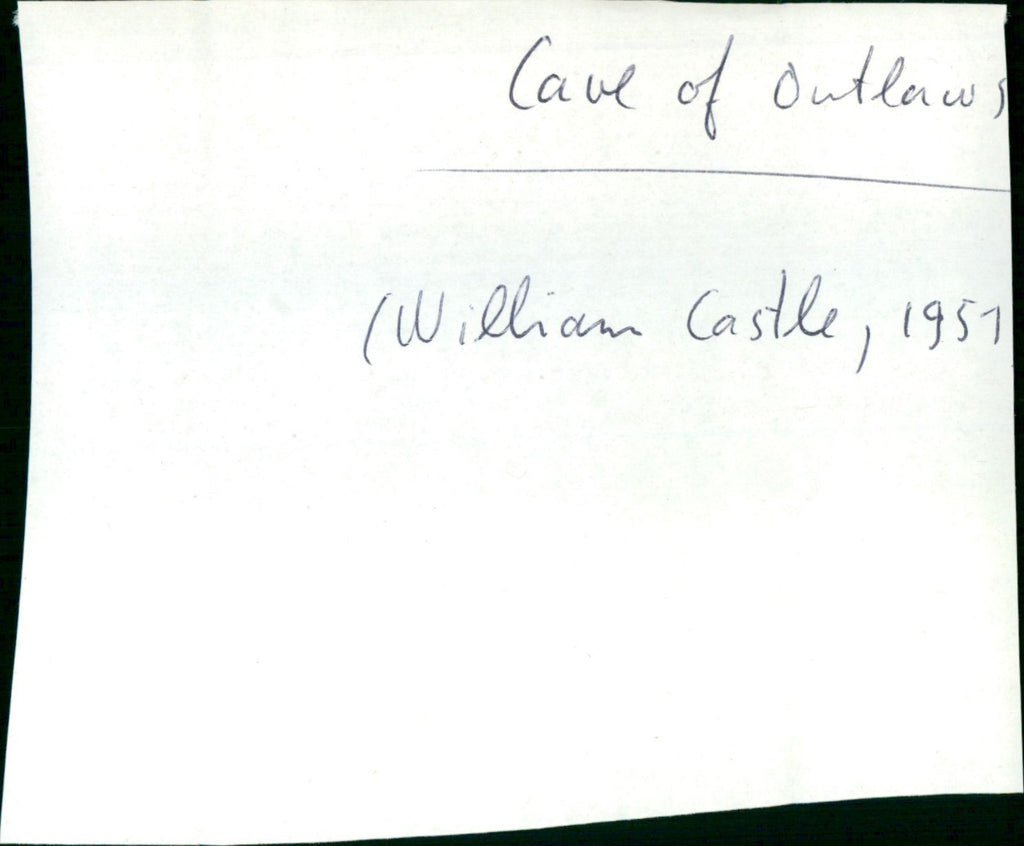 Cave of Outlaws
(William Castle, 1951